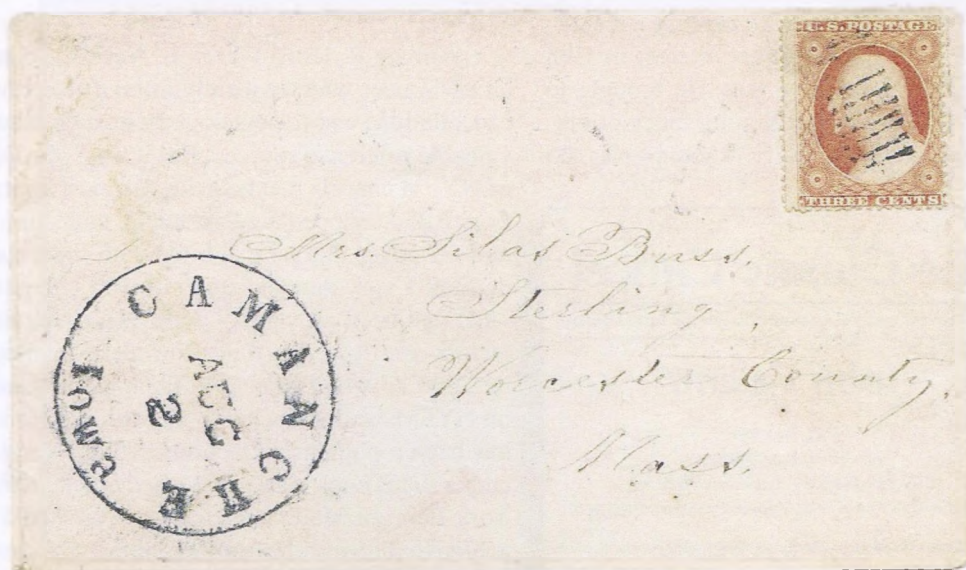 U.S. POSTAGE
THREE CENTS
Mrs. Silas Buss.
Sterling,
Worcester County.
Mass.
CAMANCHE
AUG
2
Iowa